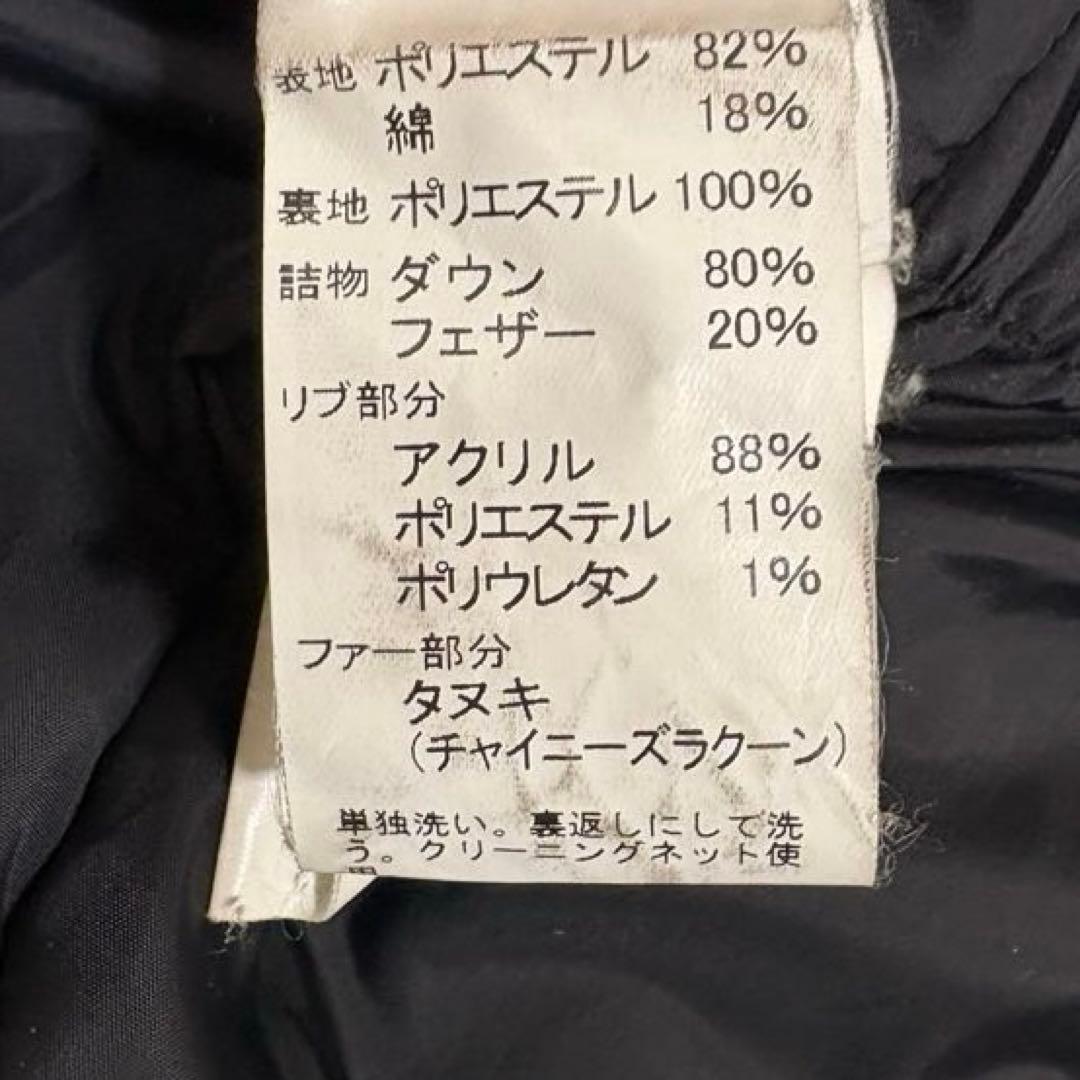 表地 ポリエステル 82%
綿 18%
裏地 ポリエステル 100%
詰物 ダウン 80%
フェザー 20%
リブ部分
アクリル 88%
ポリエステル 11%
ポリウレタン 1%
ファー部分
タヌキ
(チャイニーズラクーン)
単独洗い。裏返しにして洗
う。クリーニングネット使